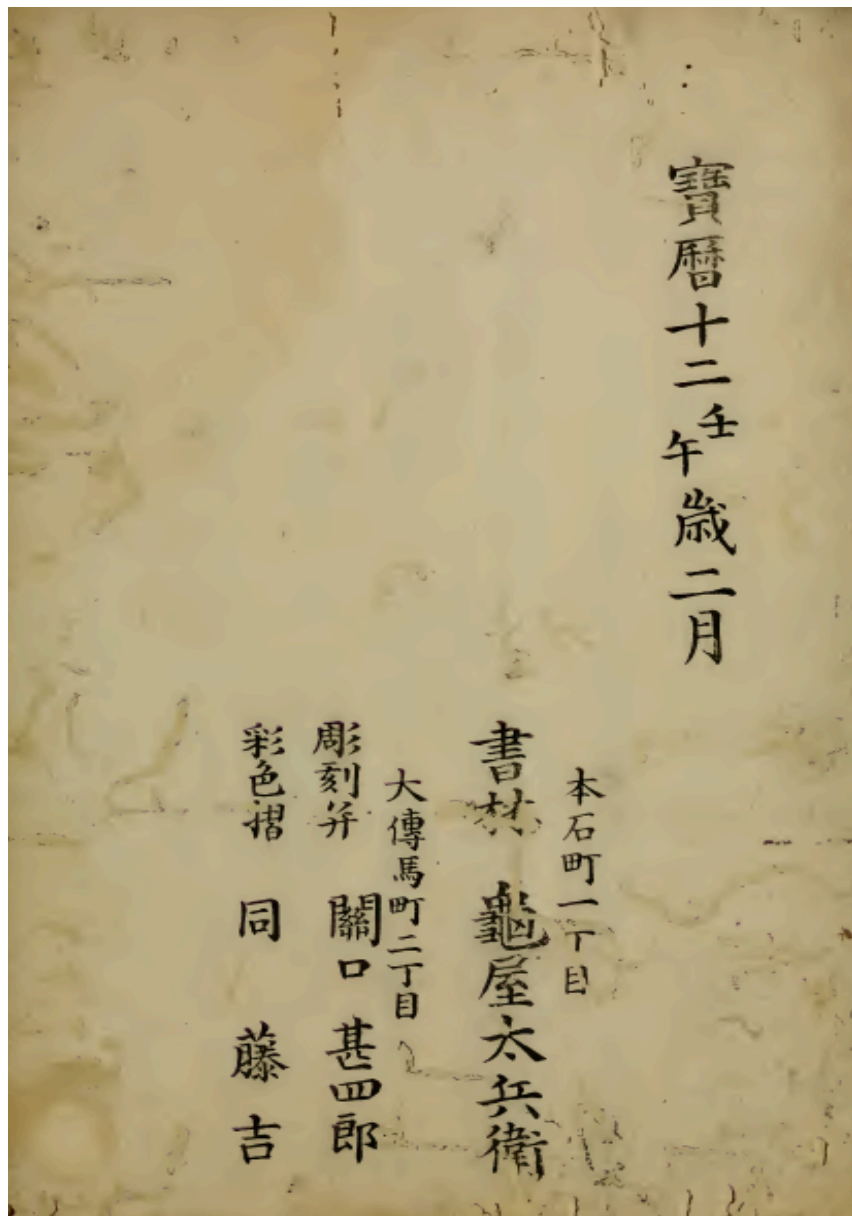 寶暦十二壬午歳二月
本石町一丁目
書林 龜屋太兵衛
大傳馬町二丁目
彫刻并 關口甚四郎
彩色摺 同 藤吉